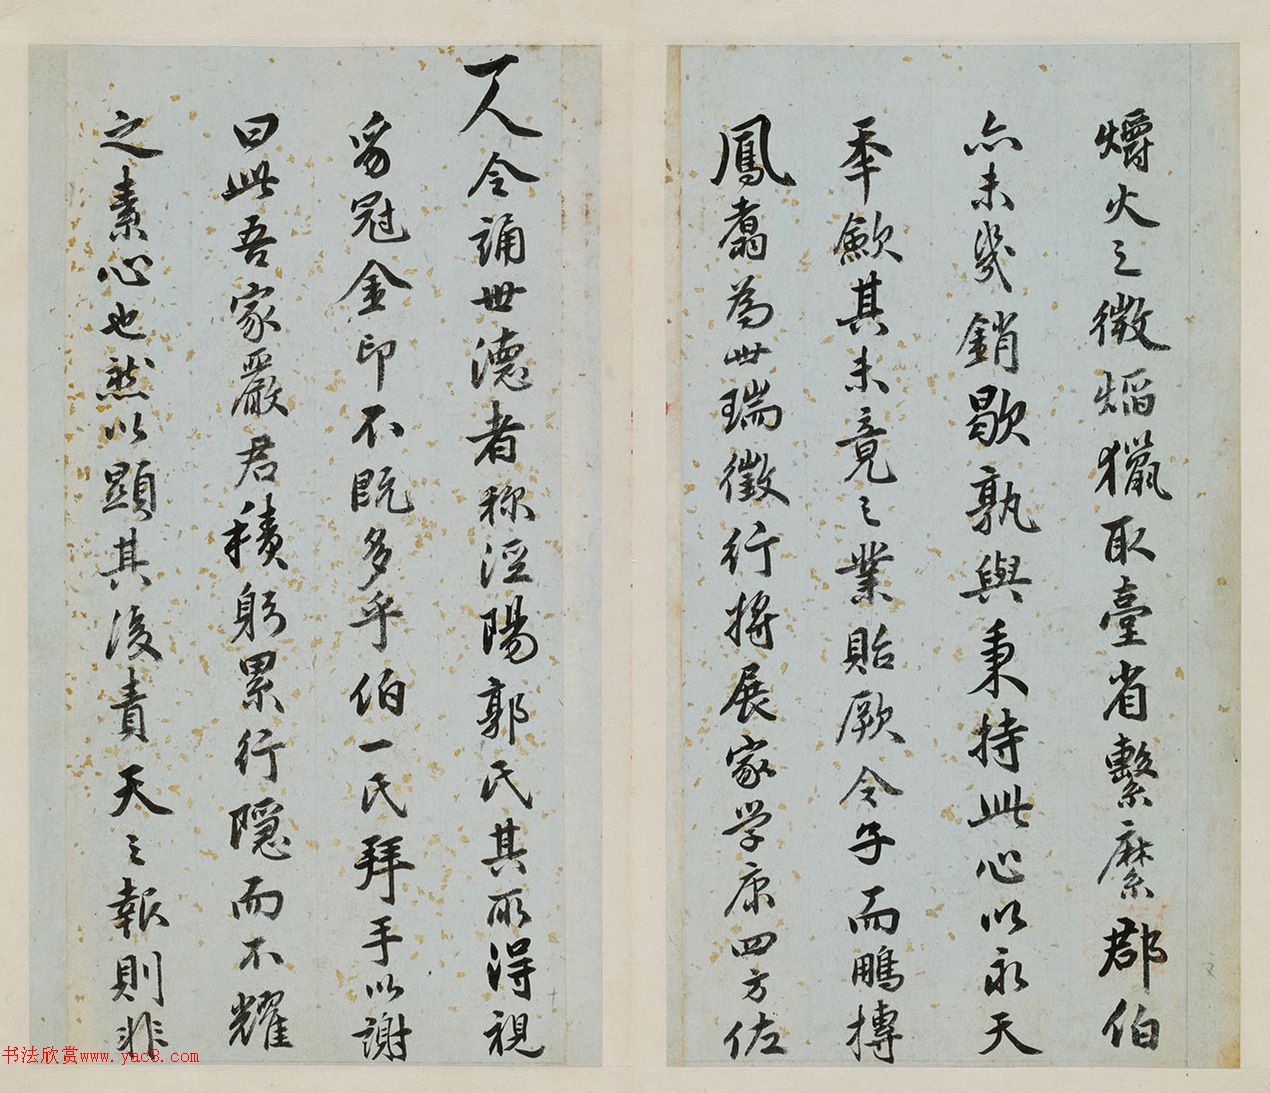 爝火之微熖獵取臺省繫縻郡伯
亦未幾銷歇孰與秉持此心以永天
年歛其未竟之業貽厥令子而鵬摶
鳳翥為世瑞徵行將展家学康四方佐
一人令誦世德者称涇陽郭氏其所得視
豸冠金印不既多乎伯一氏拜手以謝
曰此吾家嚴君積躬累行隱而不耀
之素心也然以顯其後責天之報則非
書法欣赏www.yac8.com